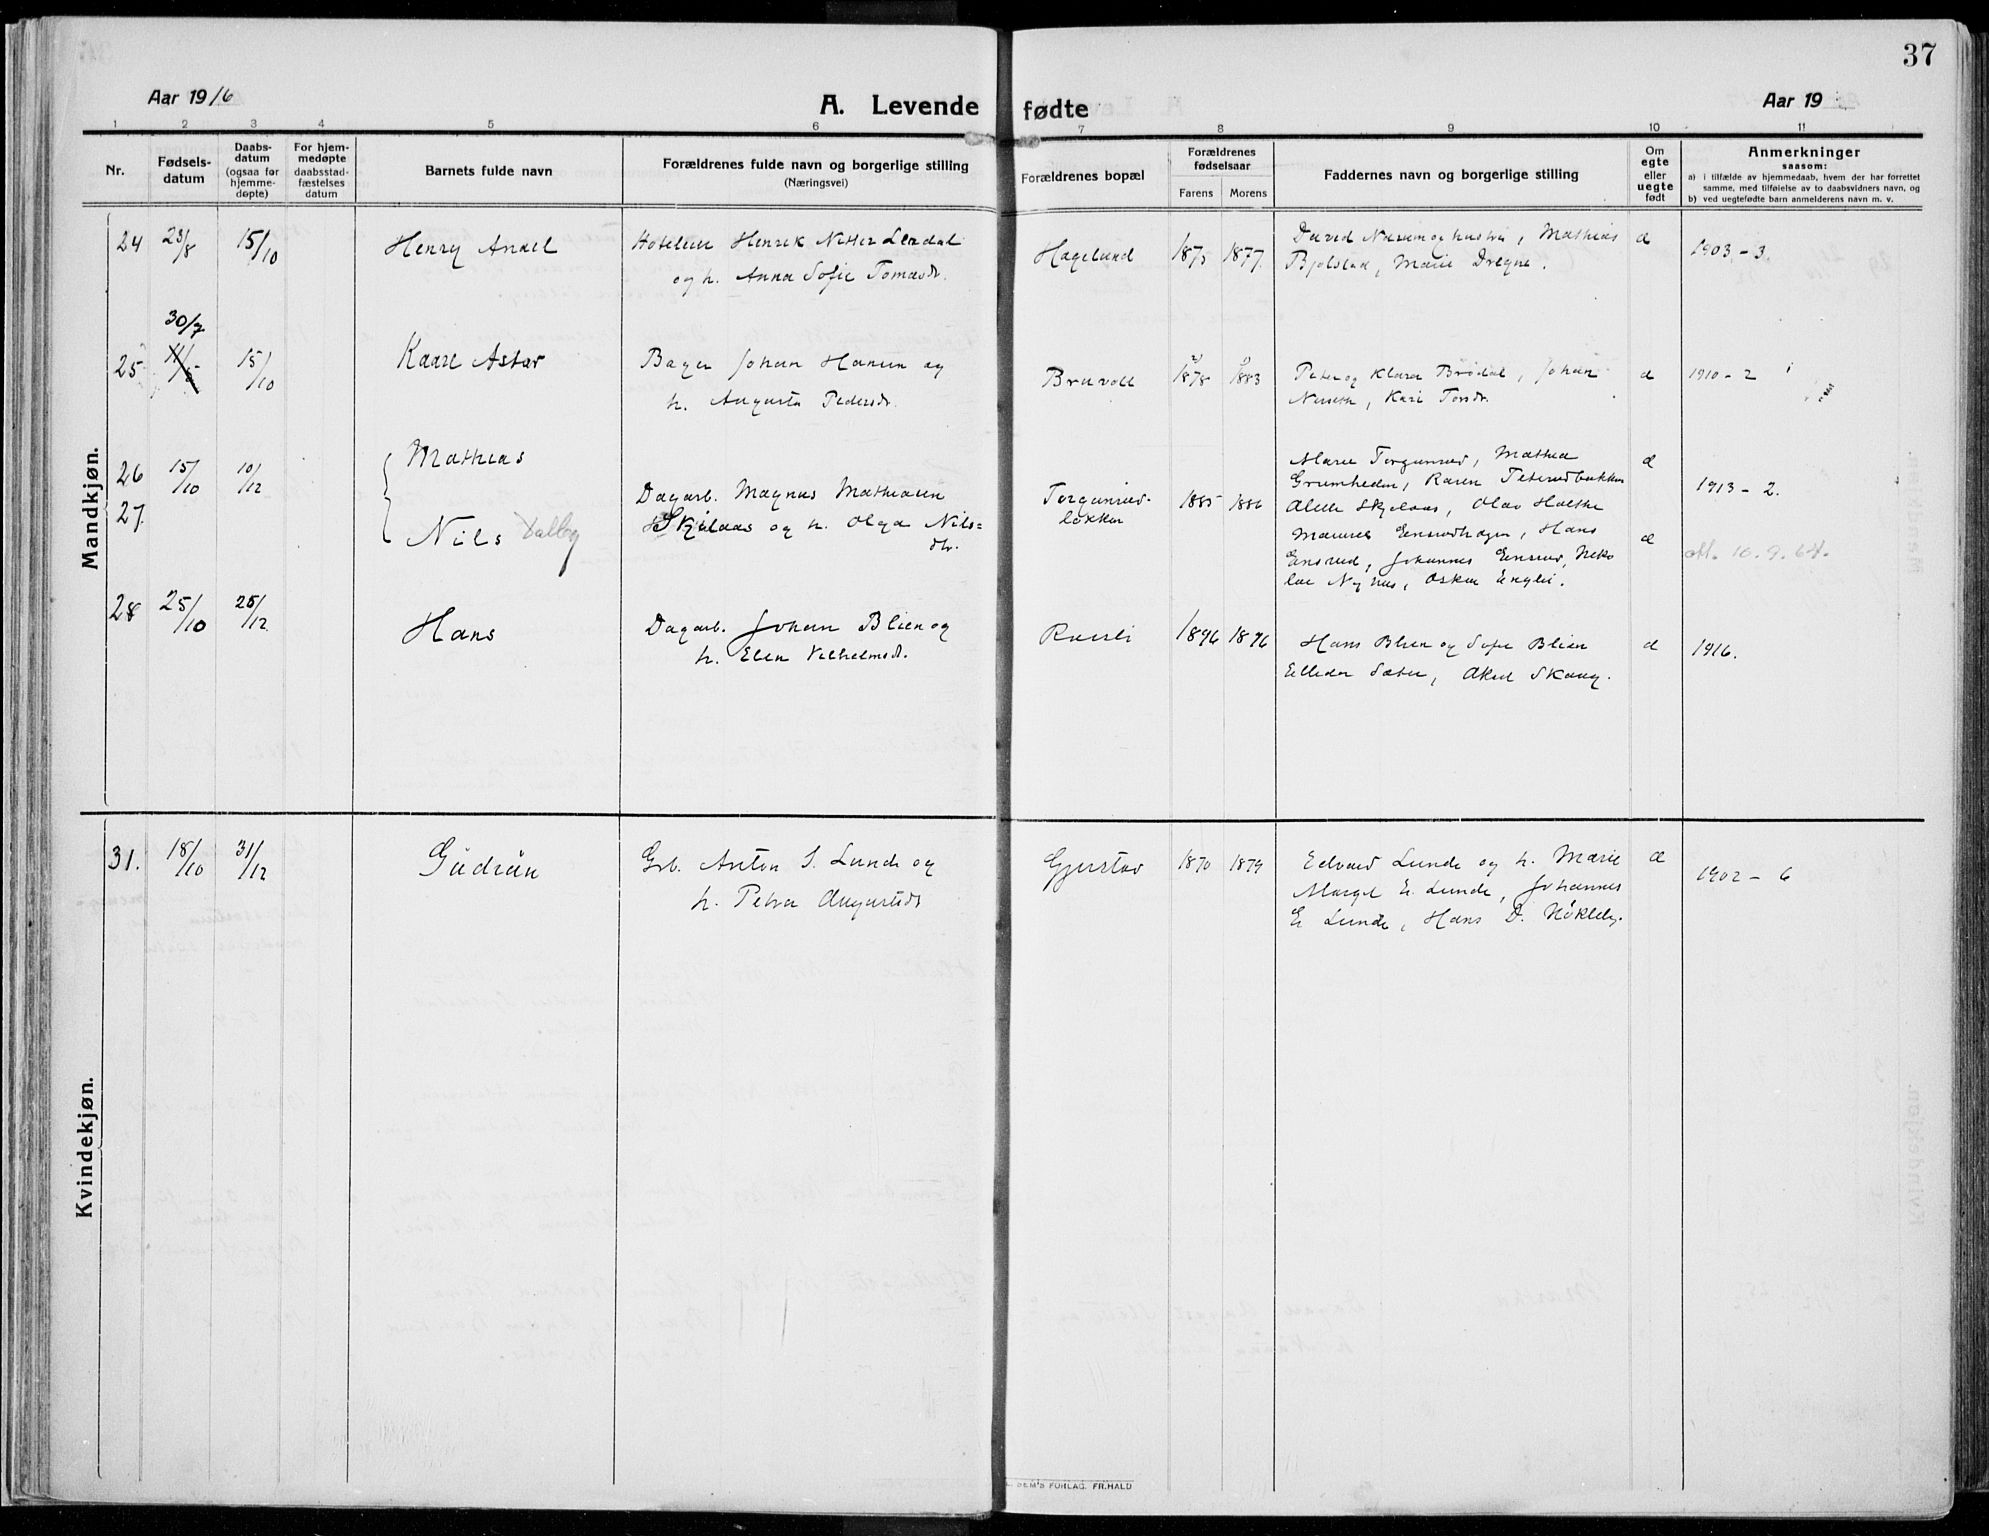 37
Aar 1916
A. Levende fødte
Aar 19
1 2 3 4 5 6 7 8 9 10 11
Nr.
Fødsels-
datum
Daabs-
datum
(ogsaa for
hjemme-
døpte)
For hjem-
medøpte
daabsstad-
fæstelses
datum
Barnets fulde navn
Forældrenes fulde navn og borgerlige stilling
(Næringsvei)
Forældrenes bopæl
Forældrenes
fødselsaar
Farens Morens
Faddernes navn og borgerlige stilling
Om
egte
eller
uegte
født
Anmerkninger
saasom:
a) i tilfælde av hjemmedaab, hvem der har forrettet
samme, med tilføielse av to daabsvidners navn, og
b) ved uegtefødte barn anmelderens navn m. v.
Mandkjøn.
24 23/8 15/10 Henry Andel
Hoteleier Henrik Nitter Lerdal
og h. Anna Sofie Tomasdr.
Hagelund 1875 1877
David Næsem og hustru, Mathias
Bjolstad, Marie Dregne.
æ 1903 - 3.
30/7
25 15/10 Kaare Astor
Bager Johan Hansen og
h. Augusta Pedersdr.
Bruvoll 1878 1883
Peter og Klara Brødal, Johan
Neseth, Kari Torsdr.
æ 1910 - 2
26 15/10 10/12 Mathias
27. Nils Dalby
Dagarb. Magnus Mathiasen
Skjelaas og h. Olga Nils=
dtr.
Torgunrud-
løkken 1885 1886
Maree Torgunrud, Mathea
Grimheden, Karen Peterudbakken
Alette Skjelaas, Olav Holthe
Mauritz Ensrudhagen, Hans
Ensrud, Johannes Ensrud, Niko
lai Nyhus, Oskar Englei.
æ
æ
1913 - 2.
At. 10. 9. 64.
28 25/10 25/12 Hans
Dagarb. Johan Blien og
h. Elen Vilhelmsdr.
1896 1896
Hans Blien og Sofie Blien
Elleden Sæter, Aksel Skaug.
æ 1916.
Kvindekjøn.
31. 18/10 31/12 Gudrun
Grb. Anton S. Lunde og
h. Petra Augustsdr
Gjerstad 1870 1879
Edvard Lunde og h. Marie
Margit E. Lunde, Johannes
E. Lunde, Hans D. Nökleby.
æ 1902 - 6
SEM'S FORLAG. FR. HALD